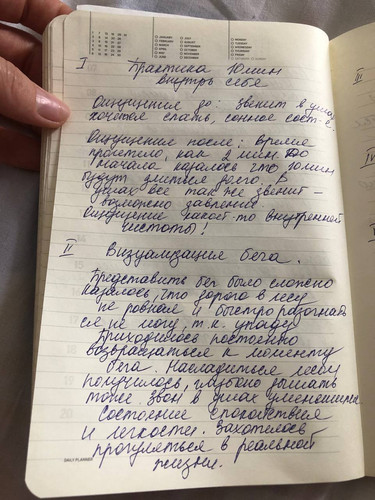 I Практика 10 мин
внутрь себя
Ощущения до: звенит в ушах
хочется спать, сонное сост-е.
Ощущение после: время
пролетело, как 2 мин.
начала казалось что 10 мин
будут длиться долго. В
ушах все так же звенит –
возможно давление.
Ощущение какой то внутренней
чистоты!
II Визуализация бега.
Представить бег было сложно
казалось, что дорога в лесу
не ровная и быстро разогнать
ся не могу, т.к. упаду
Приходилось постоянно
возвращаться к моменту
бега. Насладиться лесом
получилось, глубоко дышать
тоже. Звон в ушах уменьшился
Состояние спокойствия
и легкости. Захотелось
прогуляться в реальной
жизни.
DAILY PLANNER
III
IV